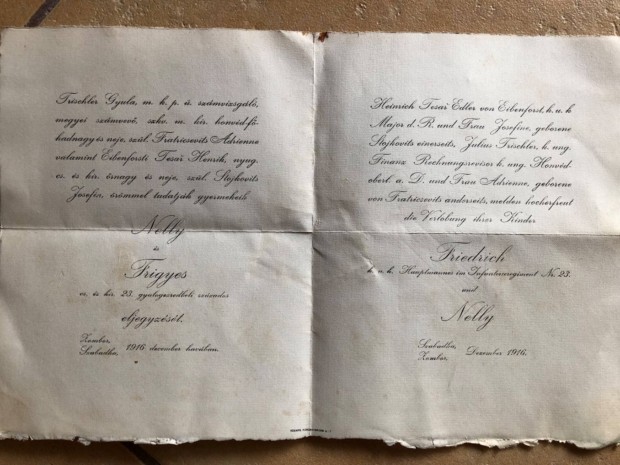 Trischler Gyula, m. k. p. ü. számvizsgáló,
megyei számvevő, szkv. m. kir. honvéd-fő-
hadnagy és neje, szül. Fratricsevits Adrienne
valamint Eibenforsti Tesař Henrik, nyug.
cs. és kir. őrnagy és neje, szül. Stojkovits
Josefin, örömmel tudatják gyermekeik
Nelly
és
Frigyes
cs. és kir. 23. gyalogezredbeli százados
eljegyzését.
Zombor,
Szabadka, 1916. december havában.
Heinrich Tesař Edler von Eibenforst, k. u. k.
Major d. R. und Frau Josefine, geborene
Stojkovits einerseits, Julius Trischler, k. ung.
Finanz Rechnungsrevisor k. ung. Honvéd-
oberlt. a. D. und Frau Adrienne, geborene
von Fratricsevits anderseits, melden hocherfreut
die Verlobung ihrer Kinder
Friedrich
k. u. k. Hauptmannes im Infanterieregiment Nr. 23.
und
Nelly
Szabadka,
Zombor, Dezember 1916.